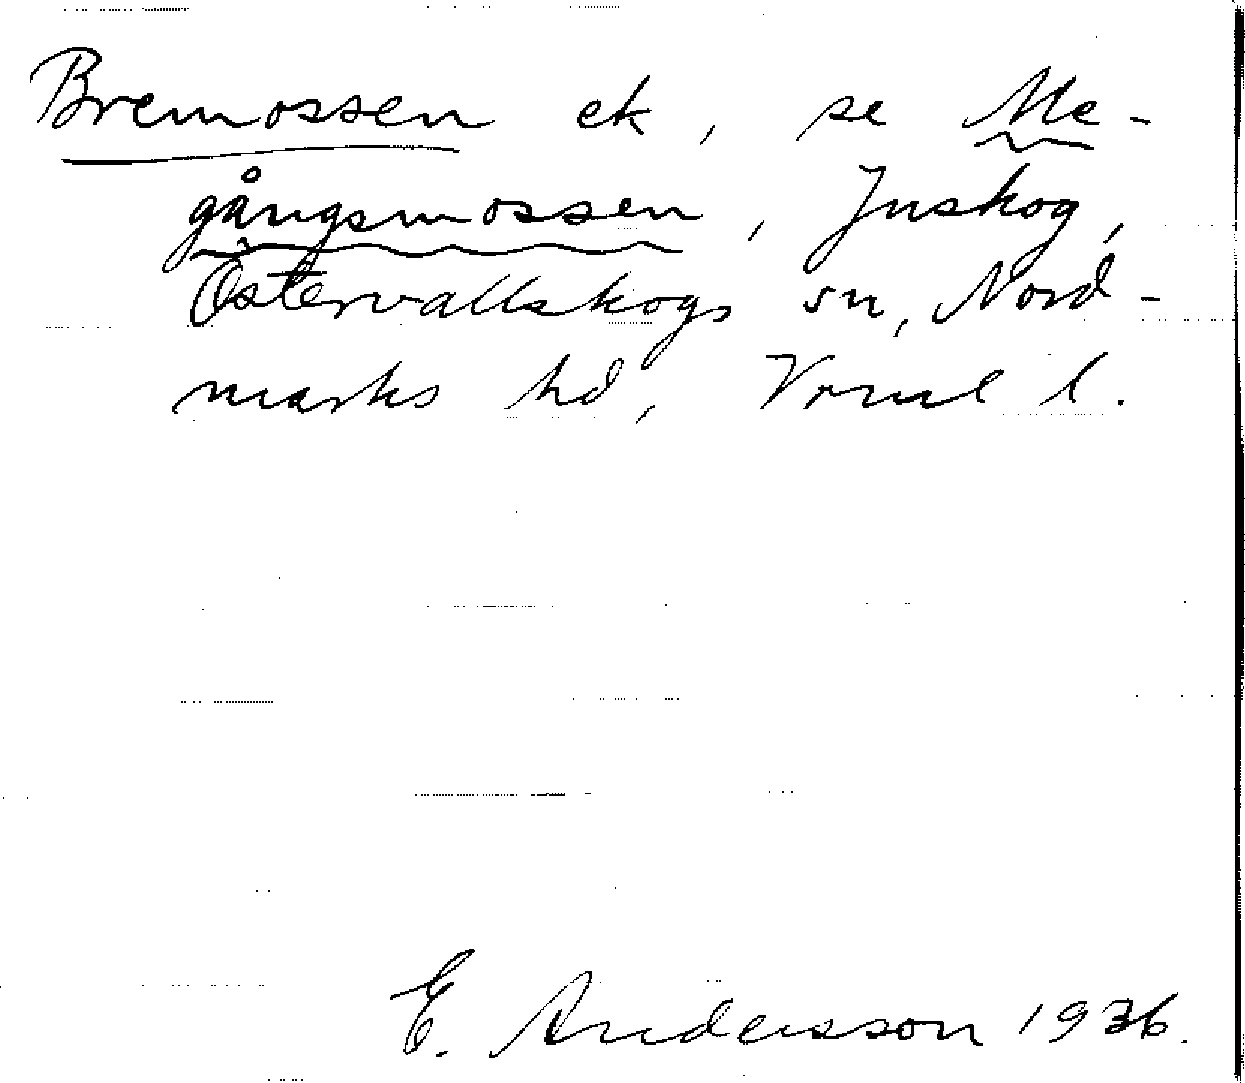 Bremossen ek, se Me-
gångsmossen, Juskog,
Östervallskogs sn, Nord-
marks hd, Vrml l.
E. Andersson 1936.